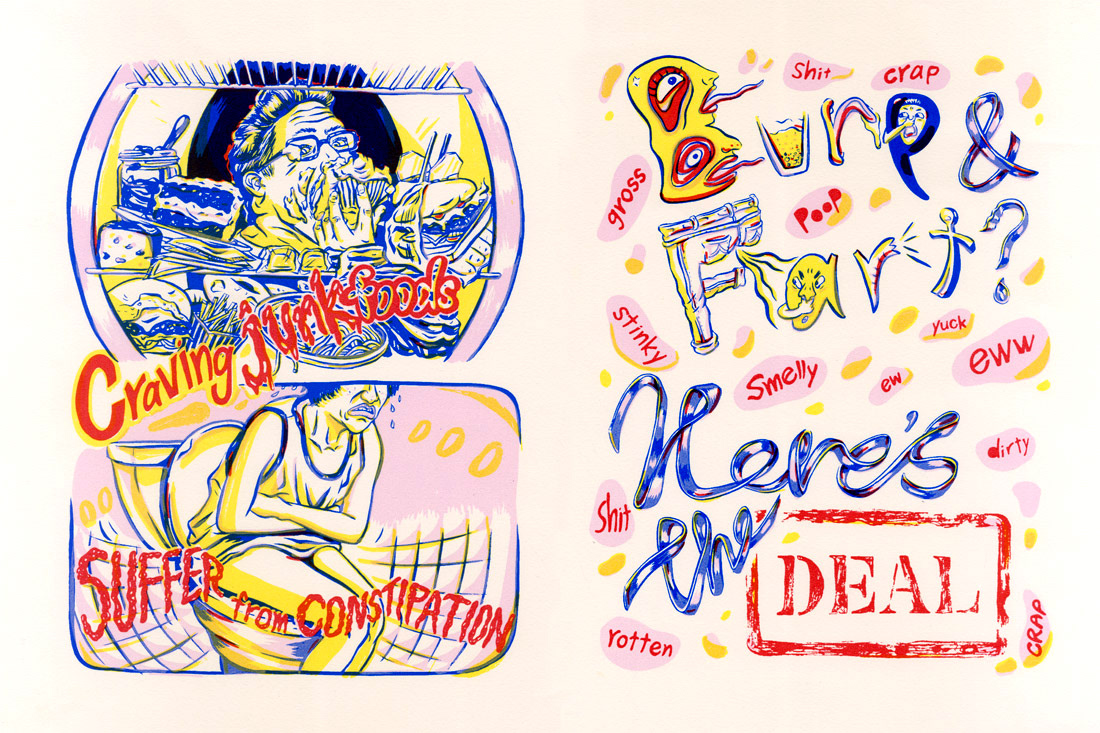 Craving junkfoods
SUFFER from CONSTIPATION
Shit
crap
Burp &
gross
Poop
Fart?
stinky
yuck
eww
Smelly
ew
Here's
dirty
Shit
the DEAL
rotten
CRAP